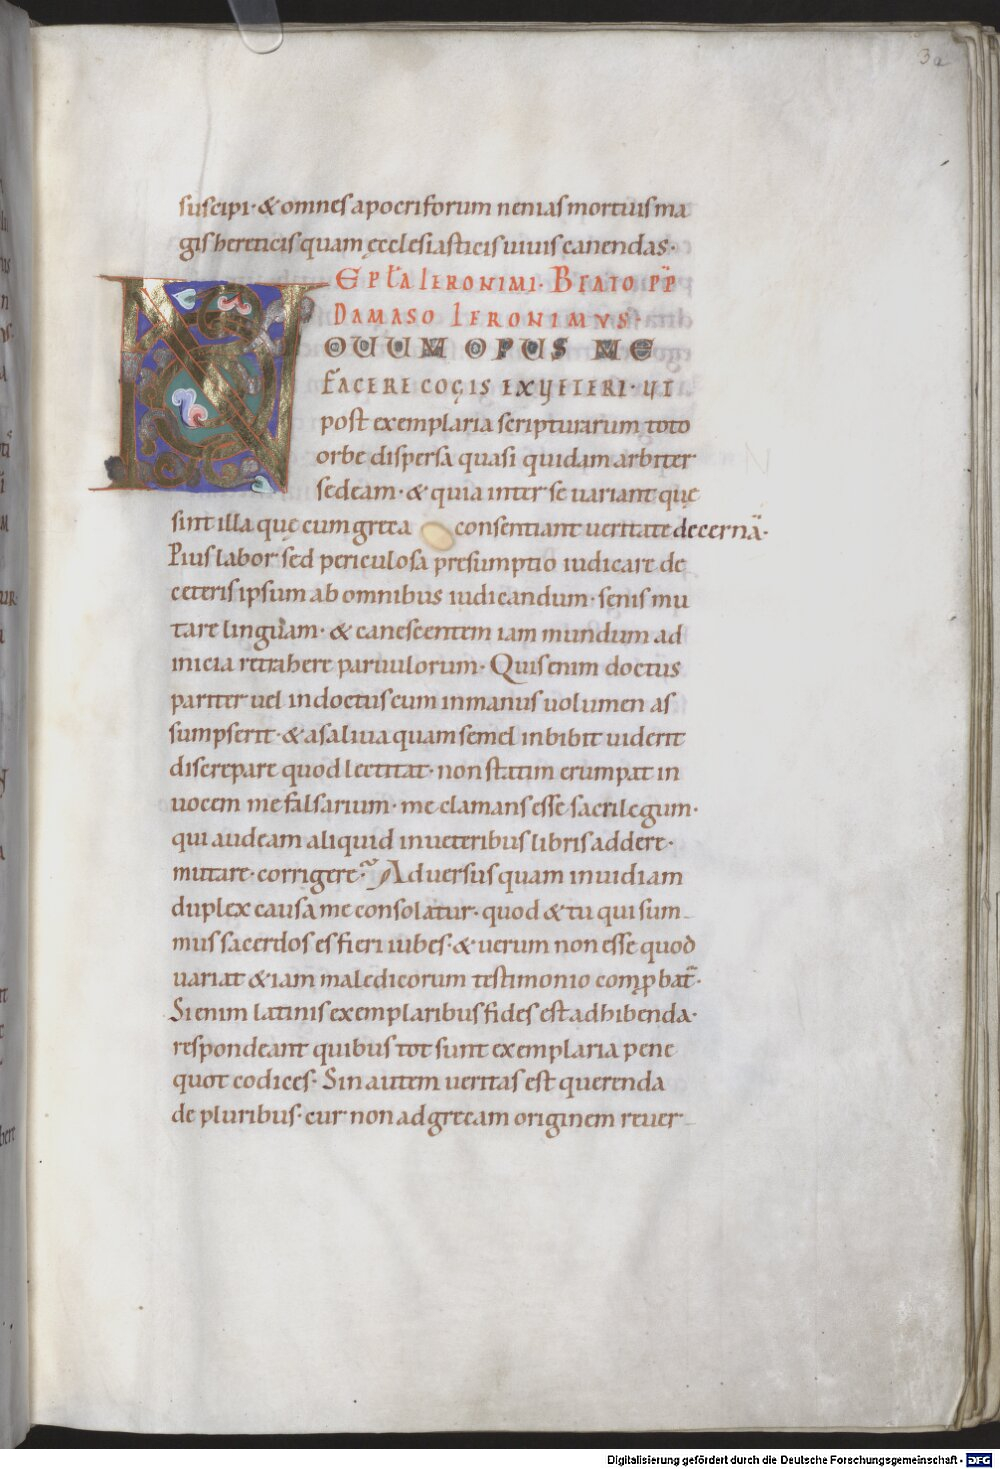 3a
suscipi· & omnes apocriforum nenias mortuis ma
gis hereticis quam ęcclesiasticis uiuis canendas·
EPLA IERONIMI· BEATO PP
DAMASO IERONIMVS·
NOUUM OPUS ME
FACERE COGIS EX UETERI· UT
post exemplaria scripturarum toto
orbe dispersa quasi quidam arbiter
sedeam· & quia inter se uariant quę
sint illa quę cum greca consentiant ueritate decernā·
Pius labor sed periculosa presumptio iudicare de
ceteris ipsum ab omnibus iudicandum· senis mu
tare linguam· & canescentem iam mundum ad
inicia retrahere paruulorum· Quis enim doctus
pariter uel indoctus cum in manus uolumen as
sumpserit· & a saliua quam semel inbibit uiderit
discrepare quod lectitat· non statim erumpat in
uocem me falsarium· me clamans esse sacrilegum·
qui audeam aliquid in ueteribus libris addere·
mutare· corrigere· Aduersus quam inuidiam
duplex causa me consolatur· quod & tu qui sum-
mus sacerdos es fieri iubes· & uerum non esse quod
uariat & iam maledicorum testimonio comꝓbat̄·
Si enim latinis exemplaribus fides est adhibenda·
respondeant quibus tot sunt exemplaria pene
quot codices· Sin autem ueritas est querenda
de pluribus· cur non ad grecam originem reuer-
Digitalisierung gefördert durch die Deutsche Forschungsgemeinschaft - DFG